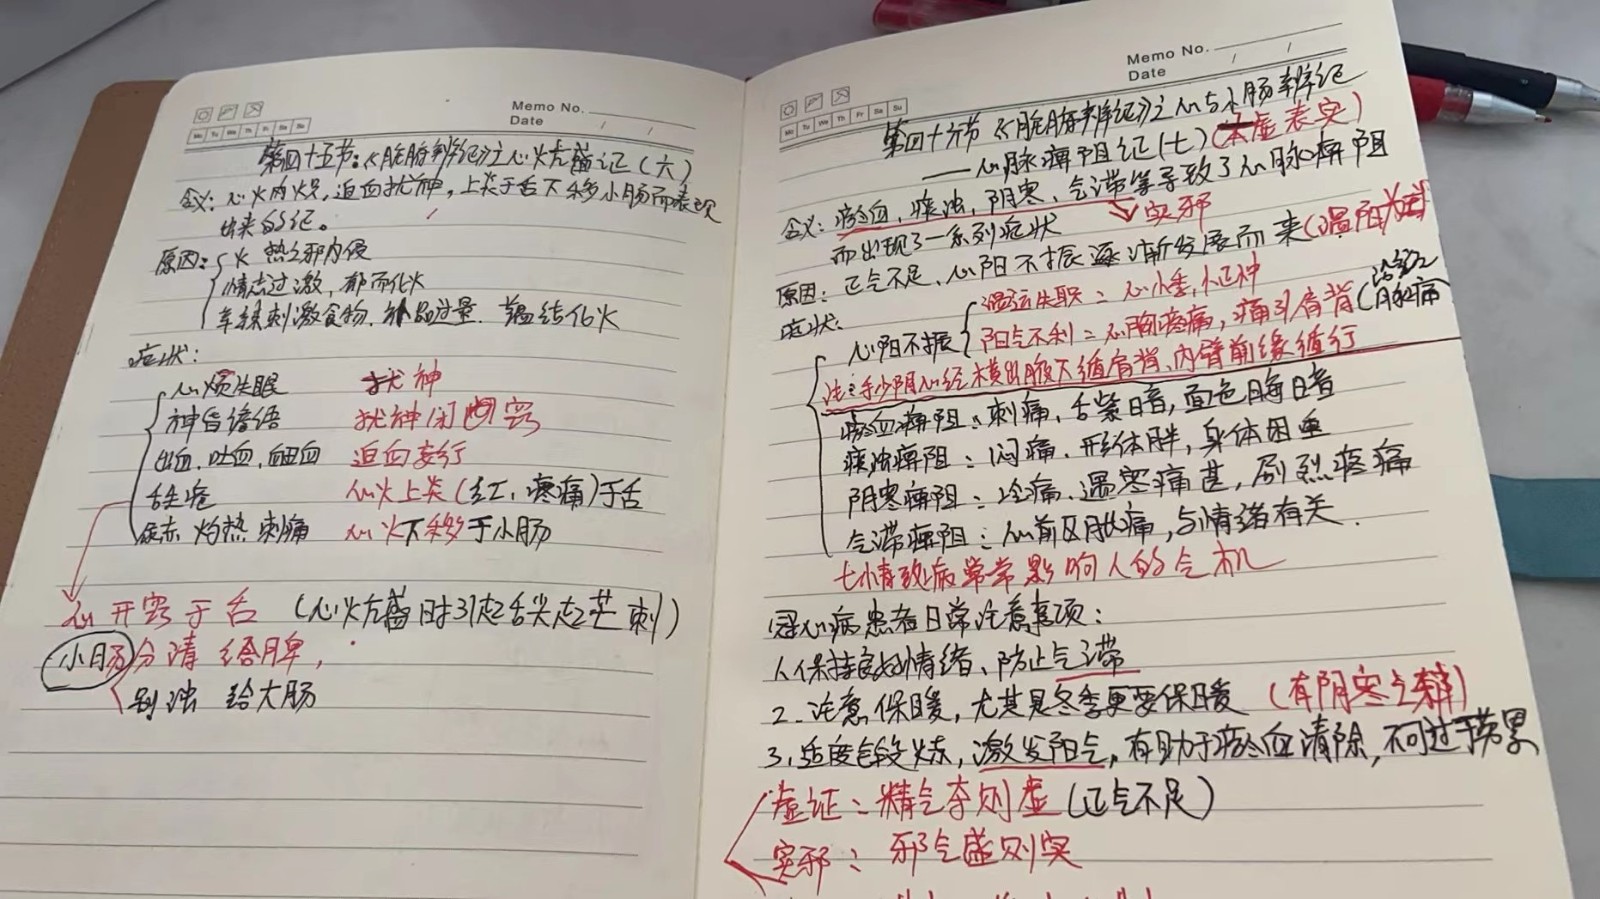 Memo No.
Date / /
Mo Tu We Th Fr Sa Su
第四十五节:《脏腑辨证》之心火亢盛证(六)
含义:心火内炽,迫血扰神,上炎于舌下移小肠而表现
出来的证。
原因: 火热之邪内侵
情志过激,郁而化火
辛辣刺激食物、补品过量、蕴结化火
症状:
心烦失眠 扰神
神昏谵语 扰神闭窍
出血、吐血、衄血 迫血妄行
舌生疮 心火上炎(红、疼痛)于舌
尿赤 灼热 刺痛 心火下移于小肠
心开窍于舌 (心火亢盛时引起舌尖起芒刺)
小肠分清 给脾,
别浊 给大肠
Memo No.
Date / /
Mo Tu We Th Fr Sa Su
第四十六节《脏腑辨证》之心与小肠辨证
——心脉痹阻证(七)(本虚表实)
含义:瘀血、痰浊、阴寒、气滞等导致了心脉痹阻
而出现了一系列症状 实邪
原因:正气不足、心阳不振逐渐发展而来(温阳
症状:
心阳不振 温运失职:心悸,怔忡
阳气不利:心胸疼痛,痛引肩背(
注:手少阴心经横出腋下循肩背、内臂前缘循行
瘀血痹阻:刺痛、舌紫暗,面色晦暗
痰浊痹阻:闷痛、形体胖,身体困重
阴寒痹阻:冷痛、遇寒痛甚,剧烈疼痛
气滞痹阻:心前区胀痛,与情绪有关.
七情致病常常影响人的气机
冠心病患者日常注意事项:
1.保持良好情绪、防止气滞
2.注意保暖,尤其是冬季更要保暖 (有阴寒之
3.适度锻炼,激发阳气,有助于瘀血清除,不可过于劳累
虚证:精气夺则虚(正气不足)
实邪:邪气盛则实